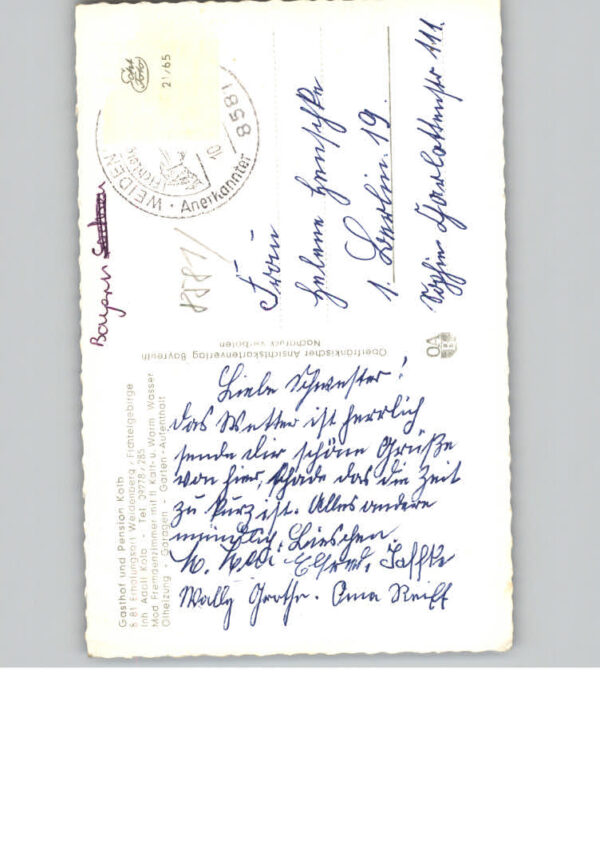 Liebe Schwester!
das Wetter ist herrlich
sende dir schöne Grüße
von hier, schade das die Zeit
zu kurz ist. Alles andere
mündlich. Lieschen.
Wally Grothe. Oma Reiff
Frau
Helene Henschke
1. Berlin. 19.
Sophie Charlottenstr 111.
Bayern
8581
WEIDEN
Anerkannter
8581
Echt
Foto
21/65
Gasthof und Pension Kolb
8581 Erholungsort Weidenberg - Fichtelgebirge
Inh. Adolf Kolb Tel. 09278/285
Mod. Fremdenzimmer mit fl. Kalt- u. Warm Wasser
Ölheizung - Garagen - Garten-Aufenthalt
Oberfränkischer Ansichtskartenverlag Bayreuth
Nachdruck verboten
OA
B